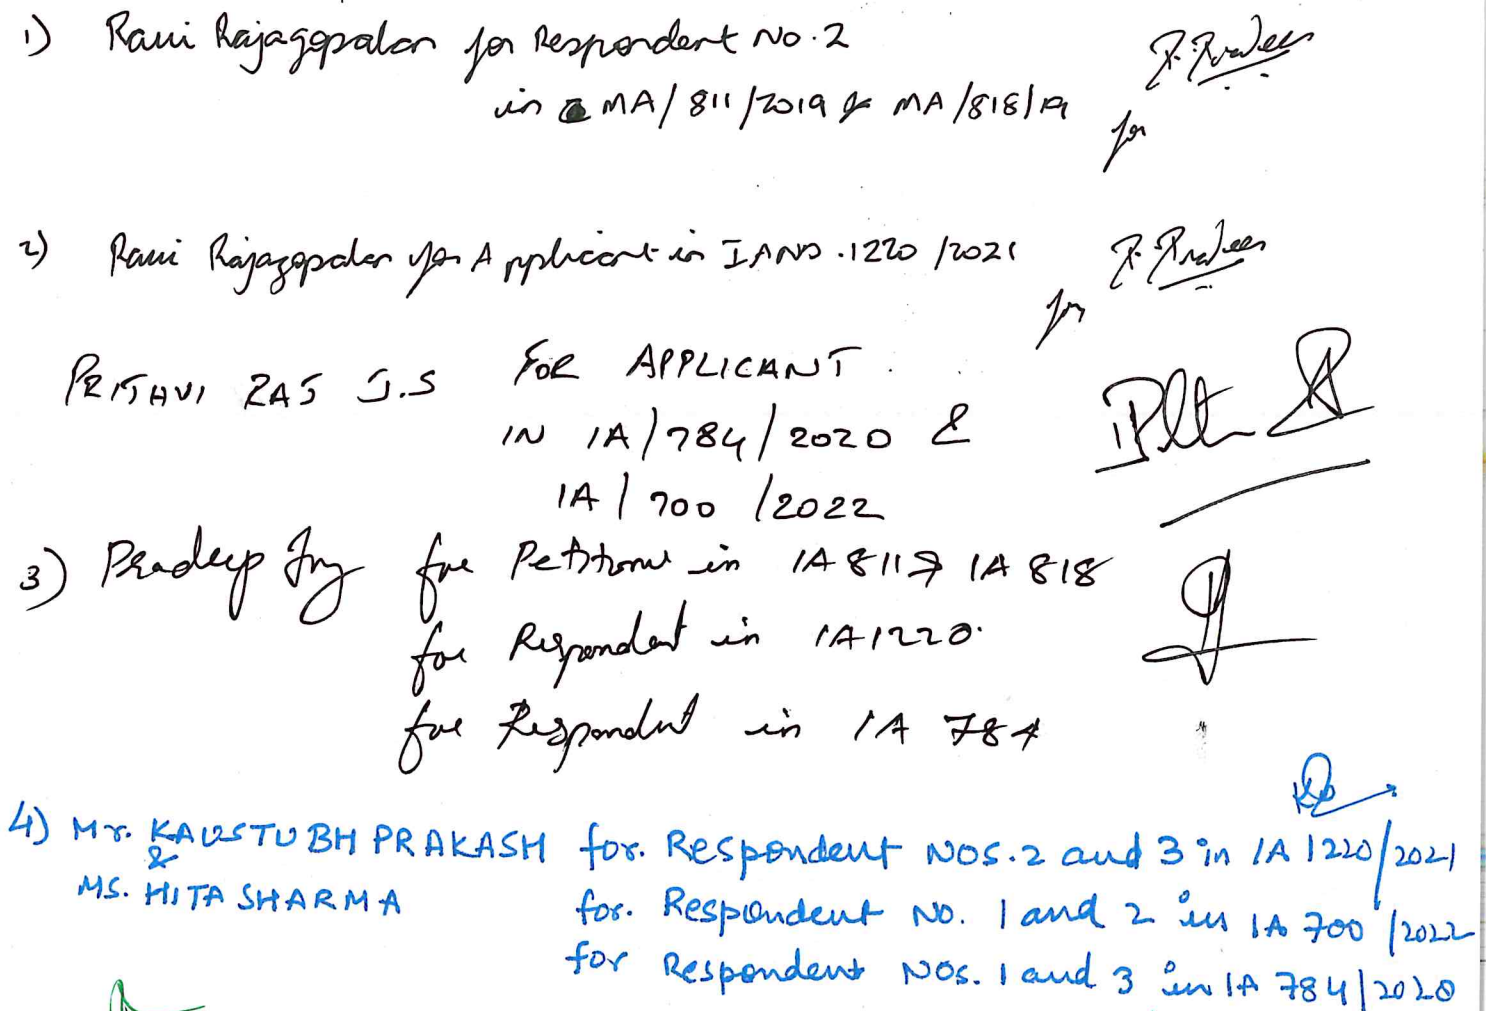 1) Ravi Rajagopalan for Respondent No.2
in MA/811/2019 & MA/818/19
for
2) Ravi Rajagopalan for Applicant in IA NO.1220/2021
for
PRITHVI RAJ J.S FOR APPLICANT
IN IA/784/2020 &
IA/700/2022
3) Pradeep Joy for Petitioner in IA 811 & IA 818
for Respondent in IA1220.
for Respondent in IA 784
4) Mr. KAUSTUBH PRAKASH for. Respondent NOS.2 and 3 in IA 1220/2021
&
MS. HITA SHARMA for. Respondent NO. 1 and 2 in IA 700/2022
for Respondent NOS. 1 and 3 in IA 784/2020